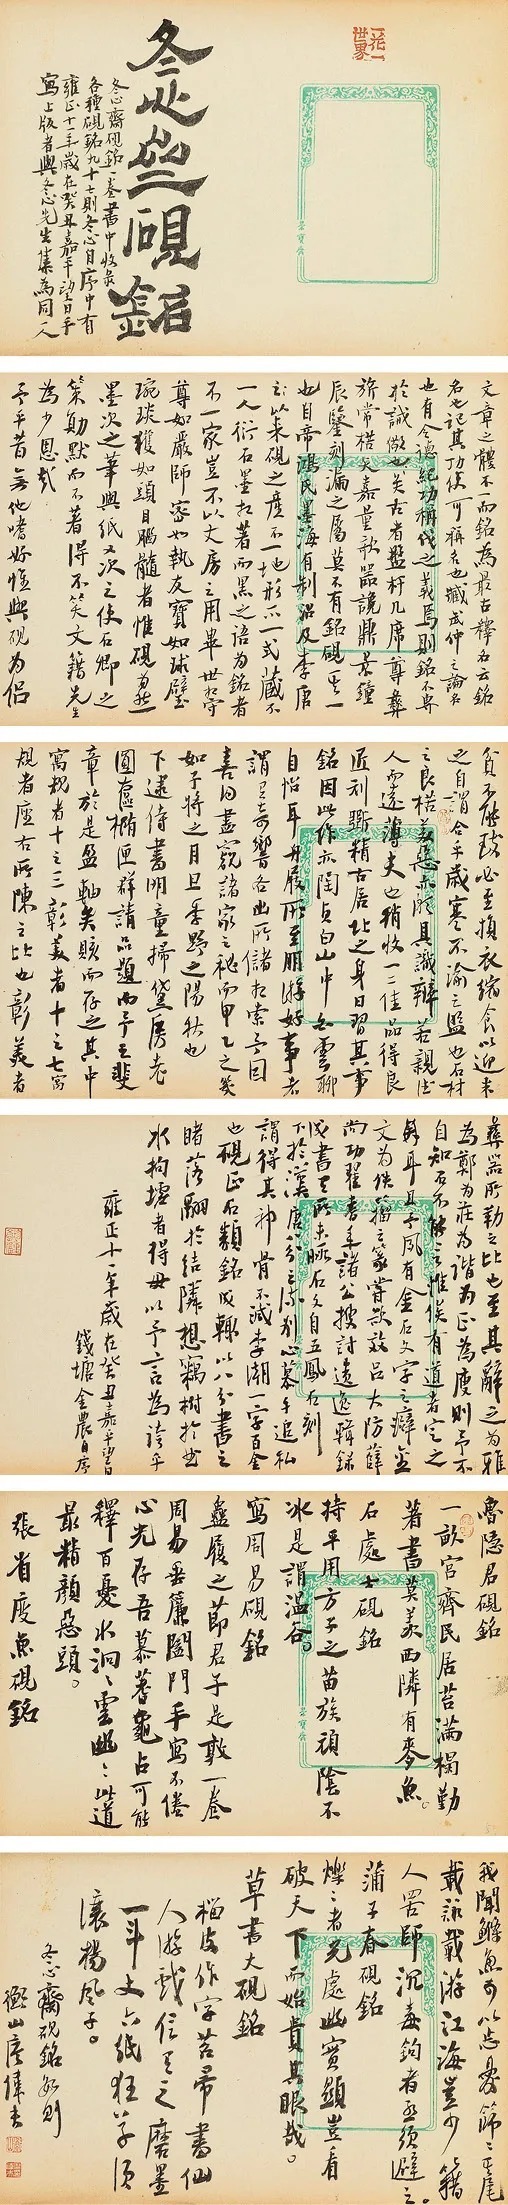 冬心斋研銘
冬心齋硯銘一卷書中收录
各種硯銘九十七則冬心自序中有
雍正十一年歲在癸丑嘉平望日手
寫上版者與冬心先生集為同一人
一花一
世界
文章之體不一而銘為最古釋名云銘
名也記其功使可稱名也臧武仲之論名
也有令德紀功稱伐之義焉則銘不專
於誡儆也矣古者盤杅几席尊彝
旂常楛矢嘉量欹器讒鼎景鐘
辰鑒刻漏之屬莫不有銘硯其一
也自帝鴻氏墨海有制器及李唐
以來硯之產不一地形不一式藏不
一人衍石墨相著而黑之語為銘者
不一家豈不以文房之用畢世相守
尊如嚴師密如執友寶如球璧
琬琰獲如頭目腦髓者惟硯為然
墨次之筆與紙又次之使石卿之
策勛默而不著得不笑文籍先生
為少恩哉
予平昔無他嗜好惟與硯為侶
貧不能致必至損衣縮食以迎來
之自謂合乎歲寒不渝之盟也石材
之良楛美惡亦頗具識辨若親德
人而遠薄夫也稍收一二佳品得良
匠利斲精古居址之身日習其事
銘因此作亦陶貞白山中白雲聊
自怡耳舟履所至朋游好事者
謂予奇響各出所儲相索予因
善因盡窺諸家之秘而甲乙之幾
如子將之月旦季野之陽秋也
下逮侍書明童掃黛房老
圓匲橢匣群請品題而予之斐
章於是盈軸矣賅而存之其中
寓規者十之三彰美者十之七寓
規者座右所陳之比也彰美者
彝器所勒之比也至其辭之為雅
為鄭為莊為諧為正為廋則予不
自知而不能言之惟俟有道者定之
斜耳予夙有金石文字之癖金
文為佚籀之篆嘗欲效吕大防薛
尚功翟耆年諸公搜討遺逸輯錄
成書里所未脈石文自五鳳石刻
下於漢唐八分之流别心慕手追私
謂得其神骨不減李潮一字百金
也硯正石類銘成輒以八分書之
睹落翮於結隣想羈樹於世
水拘墟者得毋以予言為誇乎
雍正十一年歲在癸丑嘉平望日
錢塘金農自序
魯隱君硯銘
一畝宮齊民居苔滿榻勤
著書莫羡西隣有麥魚。
石處士硯銘
持平用方子之苗族頑陰不
冰是謂溫谷。
寫周易硯銘
蠱履之節君子是敦一卷
周易垂簾闔門手寫不倦
心光存吾慕蓍龜占可能
釋百憂水洞〻雲幽〻此道
最精顏惡頭。
張省度魚硯銘
我聞鯈魚可以忘憂篩〻其尾
載詠載游江海豈少籍
人罟師沉毒鉤者亟須避之。
蒲子春硯銘
爍〻者光處幽實顯豈看
破天下而始貴其眼哉。
草書大硯銘
榴皮作字苕帚書仙
人游戲信有之磨墨
一斗丈六紙狂草須
讓楊風子。
冬心齋硯銘數則